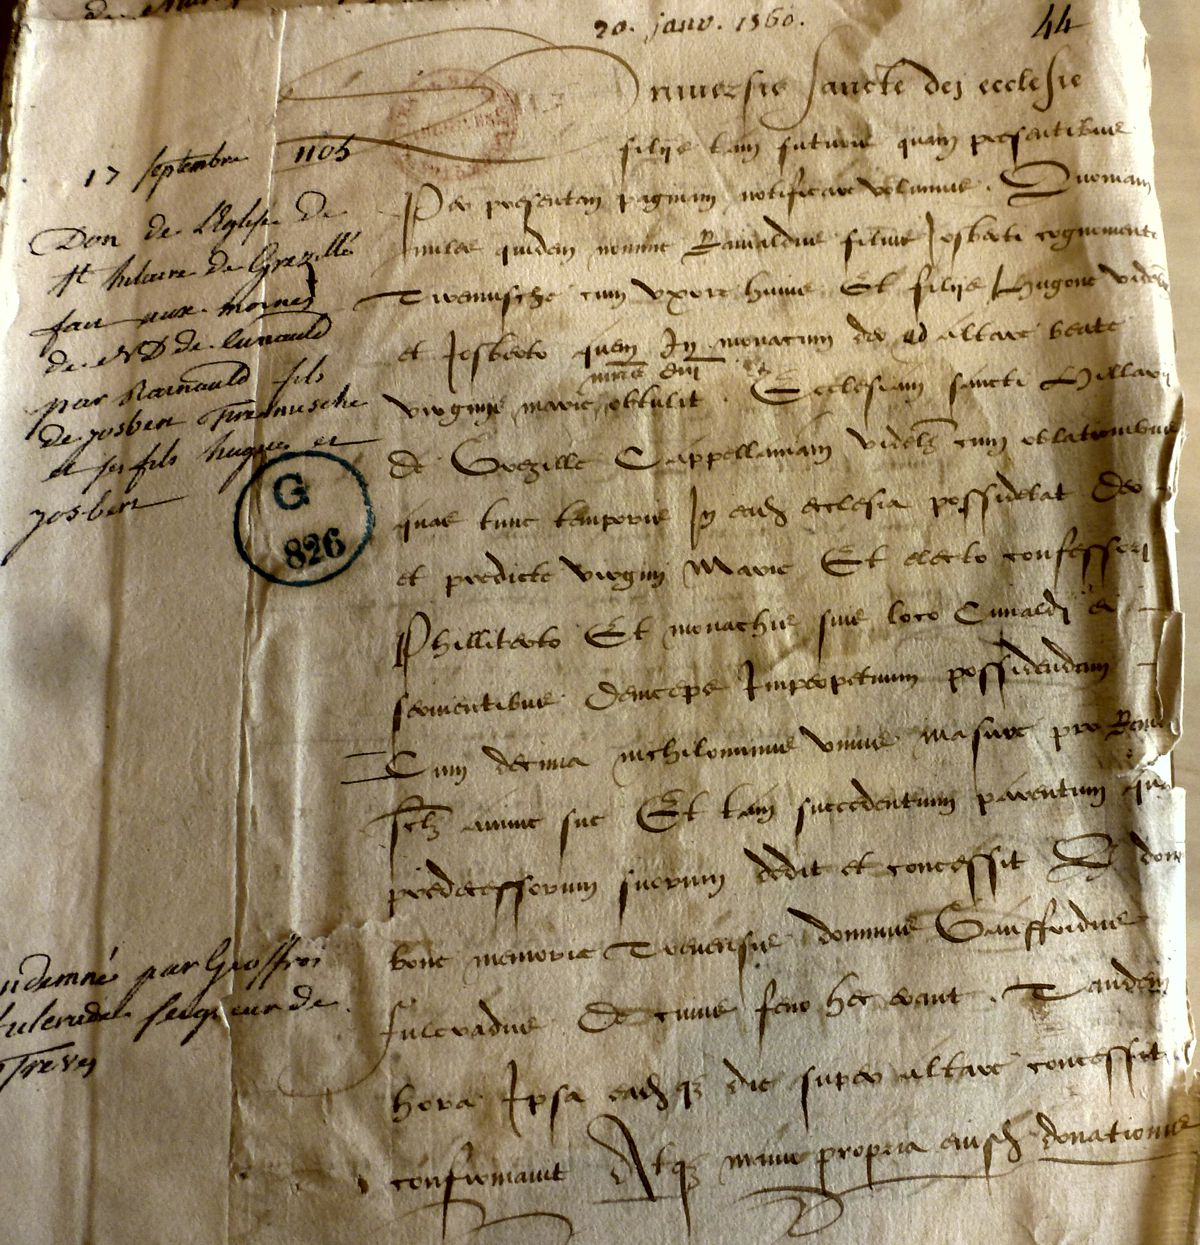 20. janv. 1560.
44
17 septembre 1105
Don de l'Eglise de
st hilaire de Grezillé
fait aux moines
de ND de Cunauld
par Rainauld fils
de Josbert Tiremusche
et ses fils hugues et
Josbert
G
826
ndemné par Geoffroi
fulcrade seigneur de
Treves
Universis sancte dei ecclesie
filiis tam futuris quam presentibus
Per presentem paginam notificare volumus. Quoniam
miles quidem nomine Rainaldus filius Josberti cognomento
Tiremusche cum uxore huius Et filiis Hugone
et Josberto quem In monacum deo ad altare beate
virginis marie obtulit. Ecclesiam sancti Hillarii
de Grezille Cappellaniam videlz cum oblationibus
quas tunc temporis In eadz ecclesia possidebat Deo
et predicte virgini Marie Et electo confessori
Philliberto Et monachis sive loco Cunaldi ei
servientibus deinceps Imperpetuum possidendam
Cum decima nichilominus unius masure pro
anime sue Et tam succedentium parentum
predecessorum suorum dedit et concessit
bone memorie Trevensis dominus Gauffridus
fulcradus De cuius feuo hec erant. Tandem
hora Ipsa eadz qz die super altare concessit
confirmavit Atqz manu propria eiusdz donationis